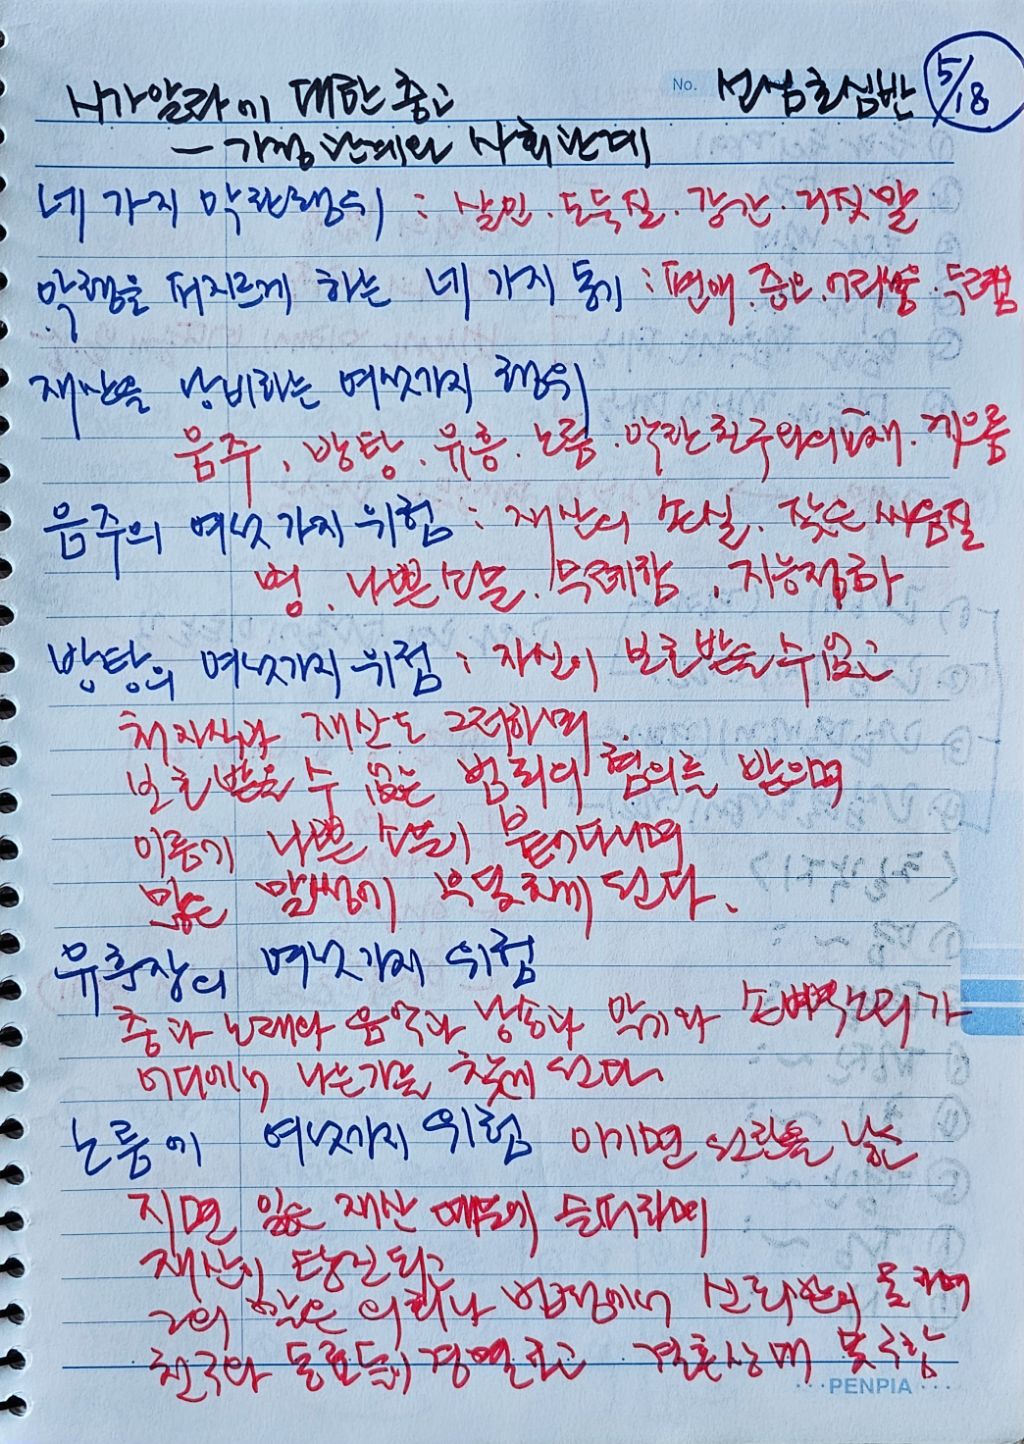 No. 선심초심반 5/18
시가알라에 대한 충고
— 가정관계와 사회관계
네 가지 악한행위 : 살인 · 도둑질 · 강간 · 거짓말
악행을 저지르게 하는 네 가지 동기 : 편애 · 증오 · 어리석음 · 두려움
재산을 낭비하는 여섯가지 행위
음주 · 방탕 · 유흥 · 노름 · 악한친구와의교제 · 게으름
음주의 여섯 가지 위험 : 재산의 손실 · 잦은 싸움 질
병 · 나쁜소문 · 무례함 · 지능저하
방탕의 여섯가지 위험 : 자신이 보호받을 수 없고
처자식과 재산도 그러하며
보호 받을 수 없는 범죄의 혐의를 받으며
이름에 나쁜 소문이 붙어다니며
많은 말썽에 된다.
유흥장의 여섯가지 위험
춤과 노래와 음악과 낭송과 악기와 손벽소리가
어디에서 나는가를 찾게 된다
노름에 여섯가지 위험 이기면 원한을 낳는
지면 잃은 재산 때문에 슬퍼하며
재산이 탕진되고
그의 말은 의회나 법정에서 신뢰받지 못하며
친구와 동료들이 경멸하고 결혼상대 못구함
PENPIA